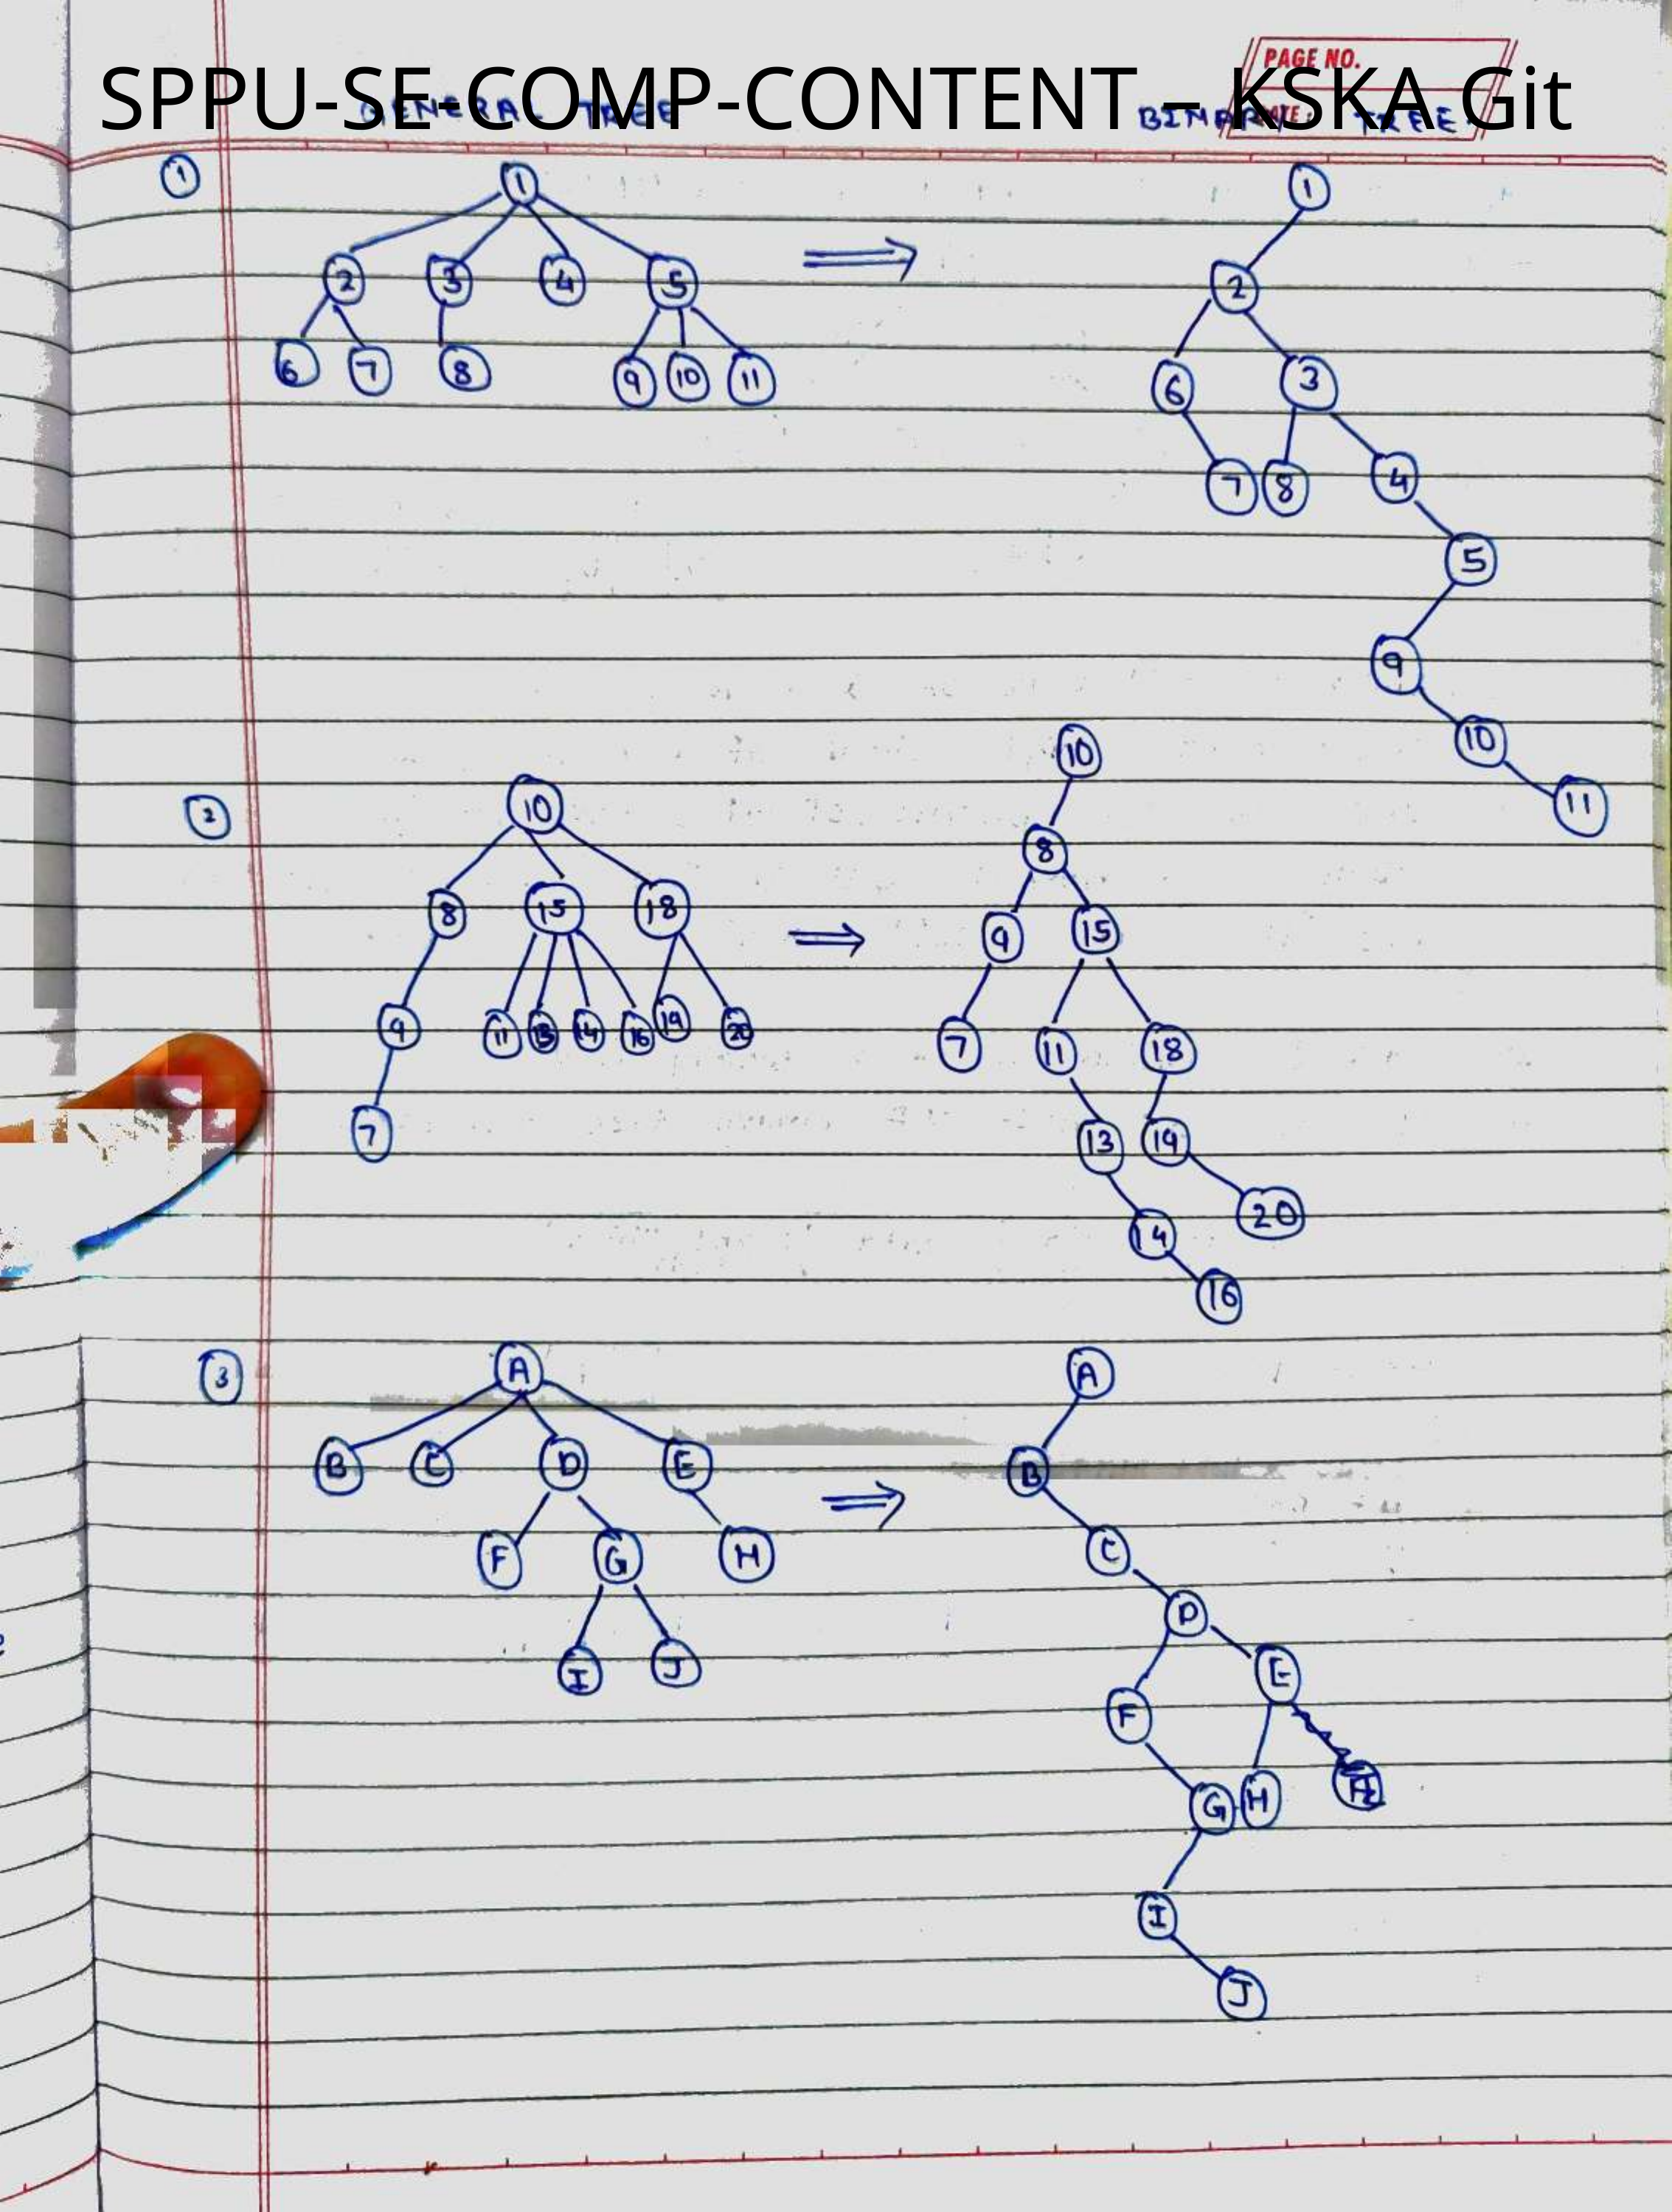 PAGE NO.
SPPU-SE-COMP-CONTENT – KSKA Git
GENERAL TREE
BINARY TREE
DATE:
1
1
2 3 4 5
6 7 8 9 10 11
1
2
6 3
7 8 4
5
9
10
11
2
10
8 15 18
9 11 13 14 16 19 20
7
10
8
9 15
7 11 18
13 19
14 20
16
3
A
B C D E
F G H
I J
A
B
C
D
F E
G H
I
J